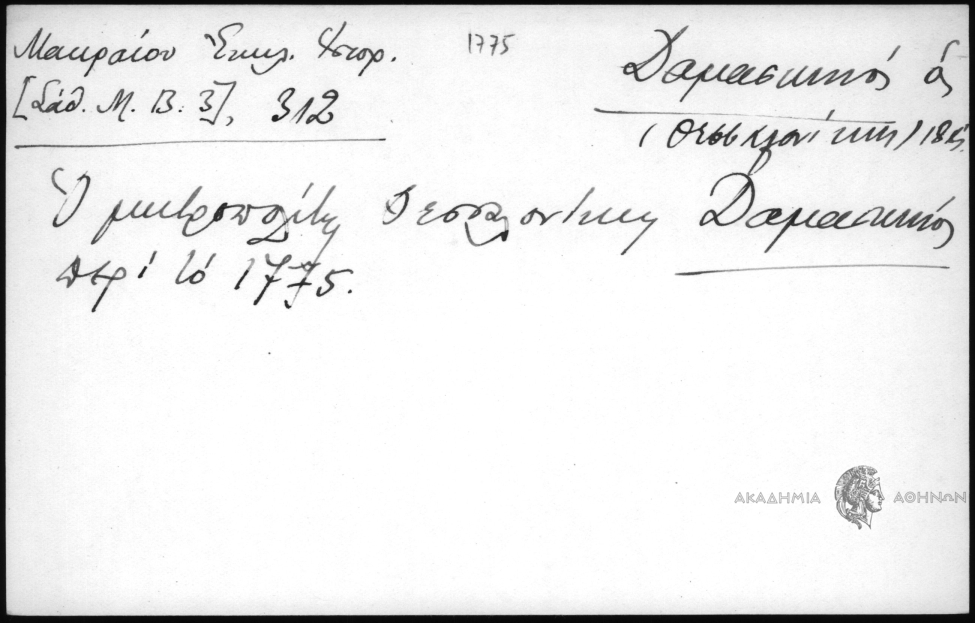 Μακραίου Ἐκκλ. Ἱστορ.
1775
[Σάθ. Μ. Β. 3], 312
Δαμασκηνός
(Θεσσαλονίκης)
Ὁ μητροπολίτης Θεσσαλονίκης Δαμασκηνός
περὶ τὸ 1775.
ΑΚΑΔΗΜΙΑ ΑΘΗΝΩΝ